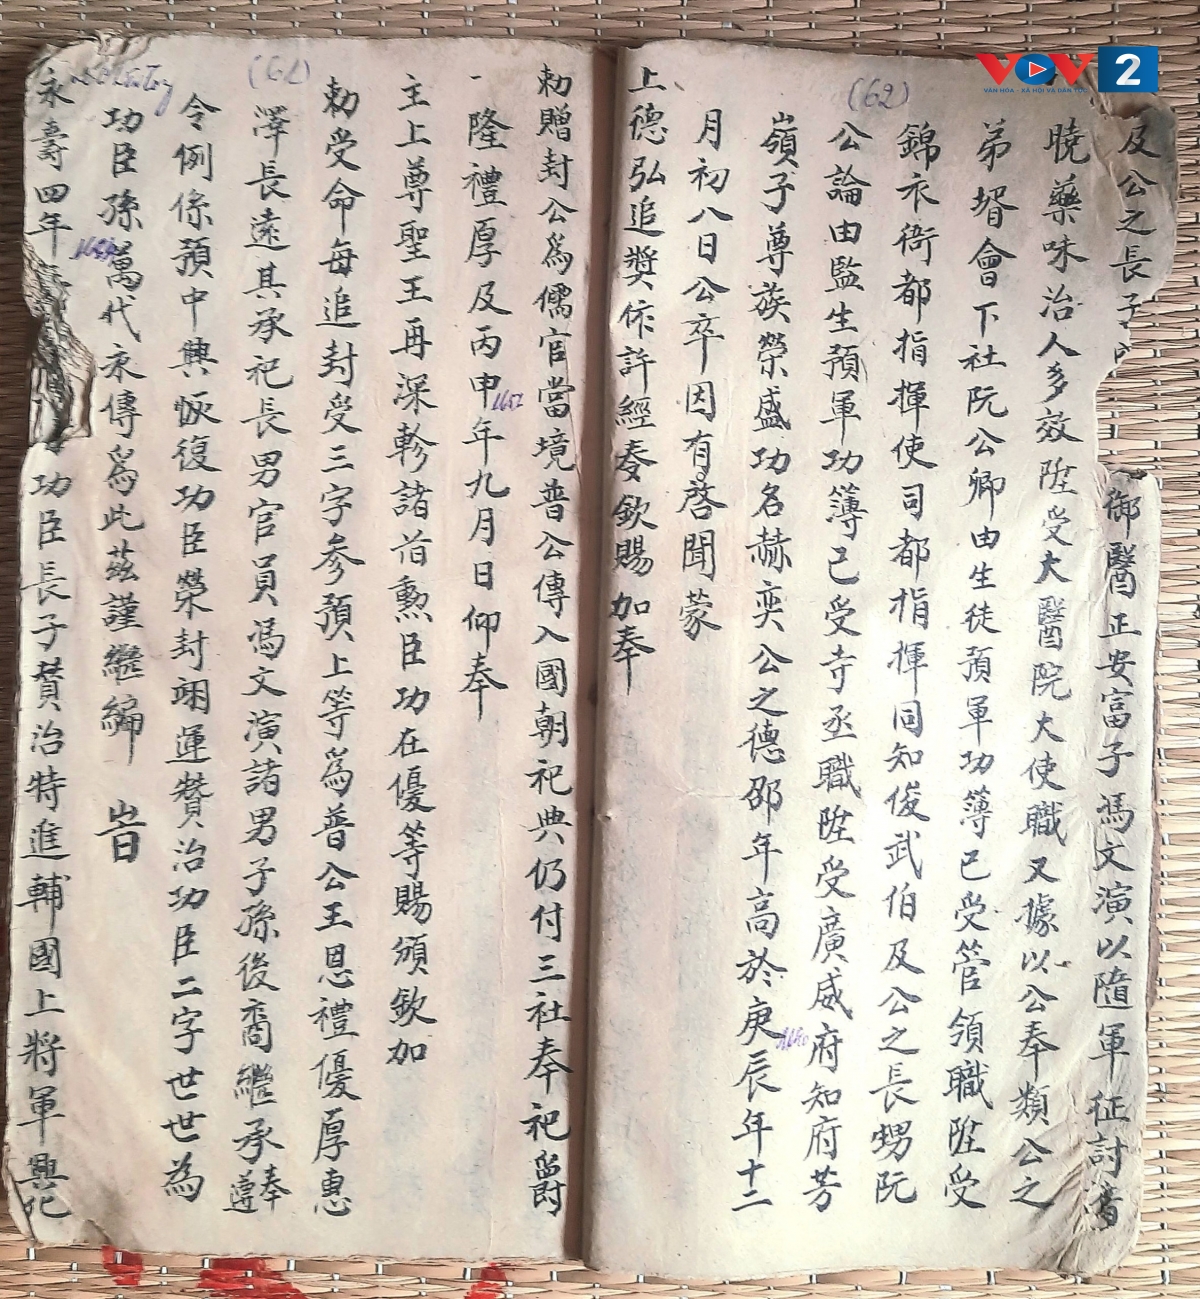 VOV2
VĂN HÓA - XÃ HỘI VÀ DÂN TỘC
(62)
及公之長子
御醫正安富子馮文演以隨軍征討者
曉藥味治人多效陞受大醫院大使職又據以公奉類公之
弟壻會下社阮公卿由生徒預軍功簿已受管領職陞受
錦衣衙都指揮使司都指揮同知俊武伯及公之長甥阮
公論由監生預軍功簿已受寺丞職陞受廣威府知府芳
嶺子尊蔟榮盛功名赫奕公之德邵年高於庚辰年十二
1640
月初八日公卒因有啓聞蒙
上德弘追獎依許經奏欽賜加奉
(61)
勅贈封公爲儒官當境普公傳入國朝祀典仍付三社奉祀爵
一隆禮厚及丙申年九月日仰奉
主上尊聖王再深軫諸首勲臣功在優等賜頒欽加
勅受命每追封受三字参預上等爲普公王恩禮優厚惠
澤長遠其承祀長男官員馮文演諸男子孫後裔繼承遵奉
令例係預中興恢復功臣榮封翊運贊治功臣二字世世為
功臣孫萬代永傳爲此茲謹繼編 旹
永壽四年
功臣長子贊治特進輔國上將軍興化